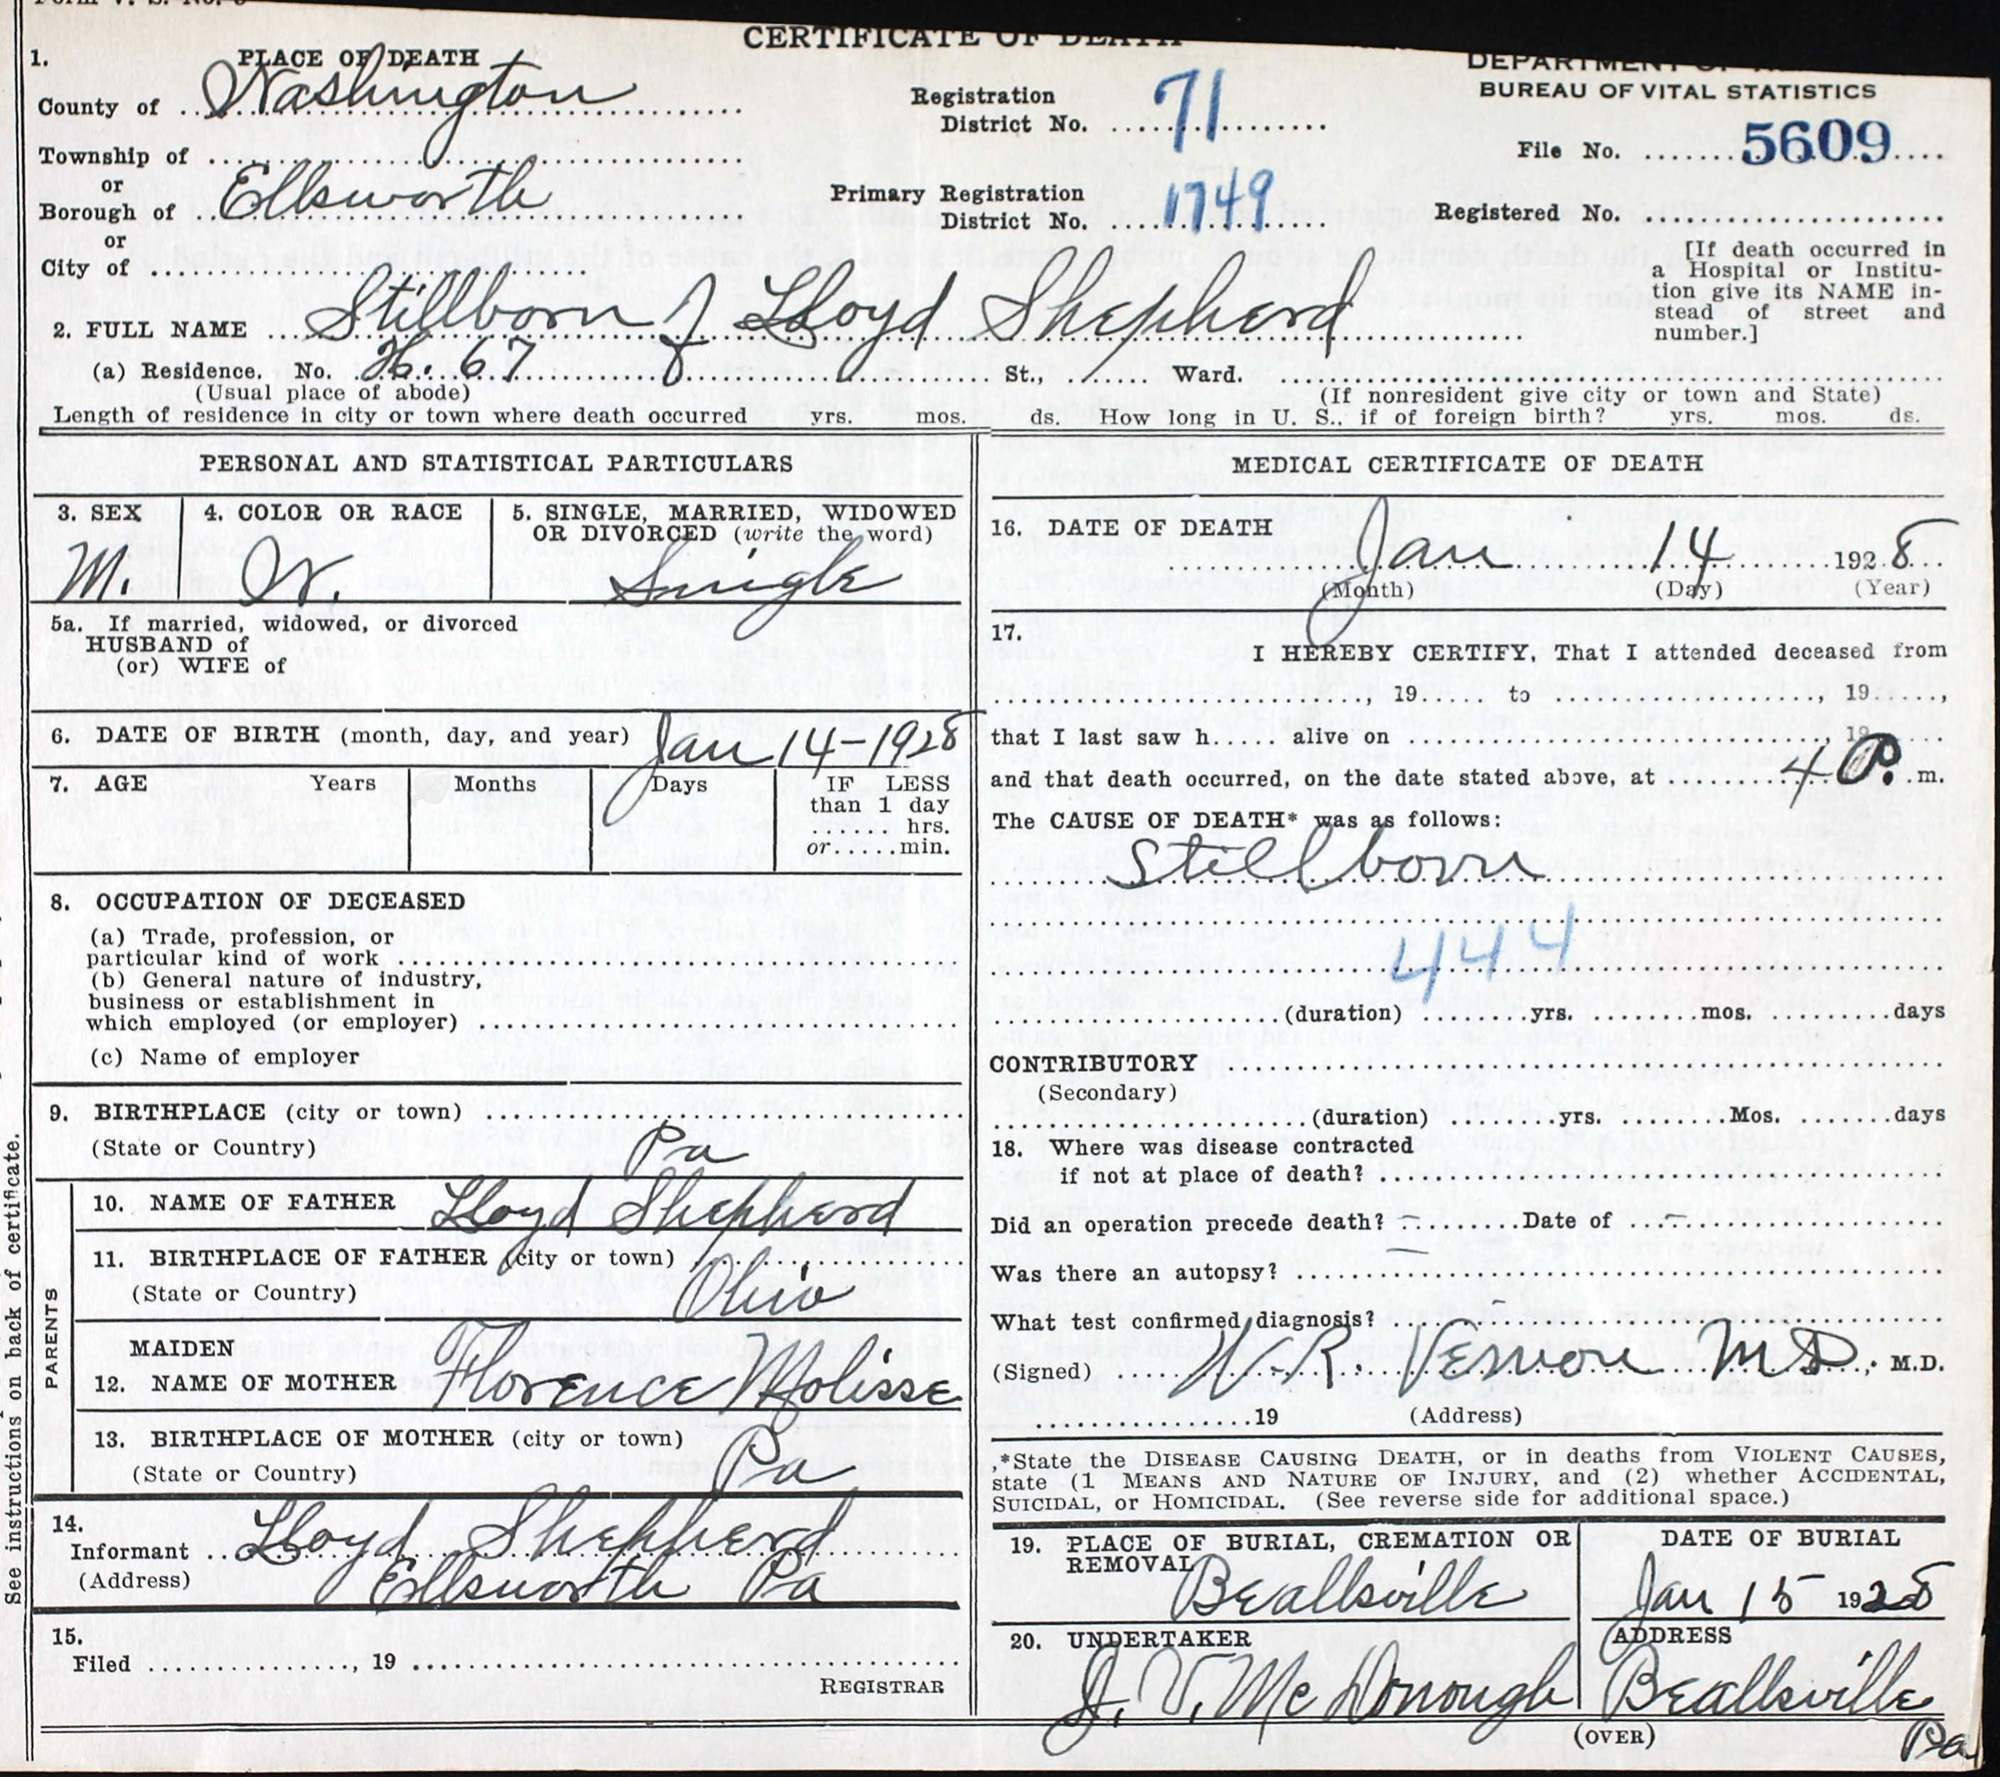 CERTIFICATE OF DEATH
1. PLACE OF DEATH
County of Washington
Township of
or
Borough of Ellsworth
or
City of
Registration
District No. 71
Primary Registration
District No. 1749
BUREAU OF VITAL STATISTICS
File No. 5609
Registered No.
[If death occurred in
a Hospital or Institu-
tion give its NAME in-
stead of street and
number.]
2. FULL NAME Stillborn of Lloyd Shepherd
(a) Residence. No. H. 67 St., Ward.
(Usual place of abode) (If nonresident give city or town and State)
Length of residence in city or town where death occurred yrs. mos. ds. How long in U. S., if of foreign birth? yrs. mos. ds.
PERSONAL AND STATISTICAL PARTICULARS
3. SEX 4. COLOR OR RACE 5. SINGLE, MARRIED, WIDOWED
OR DIVORCED (write the word)
M. W. Single
5a. If married, widowed, or divorced
HUSBAND of
(or) WIFE of
6. DATE OF BIRTH (month, day, and year) Jan 14-1928
7. AGE Years Months Days IF LESS
than 1 day
hrs.
or.....min.
8. OCCUPATION OF DECEASED
(a) Trade, profession, or
particular kind of work
(b) General nature of industry,
business or establishment in
which employed (or employer)
(c) Name of employer
9. BIRTHPLACE (city or town)
(State or Country) Pa
PARENTS
10. NAME OF FATHER Lloyd Shepherd
11. BIRTHPLACE OF FATHER (city or town)
(State or Country) Ohio
MAIDEN
12. NAME OF MOTHER Florence Molisse
13. BIRTHPLACE OF MOTHER (city or town)
(State or Country) Pa
14.
Informant Lloyd Shepherd
(Address) Ellsworth Pa
15.
Filed , 19
REGISTRAR
See instructions on back of certificate.
MEDICAL CERTIFICATE OF DEATH
16. DATE OF DEATH
Jan 14 1928
(Month) (Day) (Year)
17.
I HEREBY CERTIFY, That I attended deceased from
, 19 to , 19 ,
that I last saw h alive on , 19
and that death occurred, on the date stated above, at 4 P. m.
The CAUSE OF DEATH* was as follows:
Stillborn
444
(duration) yrs. mos. days
CONTRIBUTORY
(Secondary)
(duration) yrs. Mos. days
18. Where was disease contracted
if not at place of death?
Did an operation precede death? Date of
Was there an autopsy?
What test confirmed diagnosis?
(Signed) W. R. Vernon MD, M.D.
19 (Address)
*State the DISEASE CAUSING DEATH, or in deaths from VIOLENT CAUSES,
state (1 MEANS AND NATURE OF INJURY, and (2) whether ACCIDENTAL,
SUICIDAL, or HOMICIDAL. (See reverse side for additional space.)
19. PLACE OF BURIAL, CREMATION OR
REMOVAL
Beallsville
DATE OF BURIAL
Jan 15 1928
20. UNDERTAKER
J. V. McDonough
ADDRESS
Beallsville
Pa
(OVER)